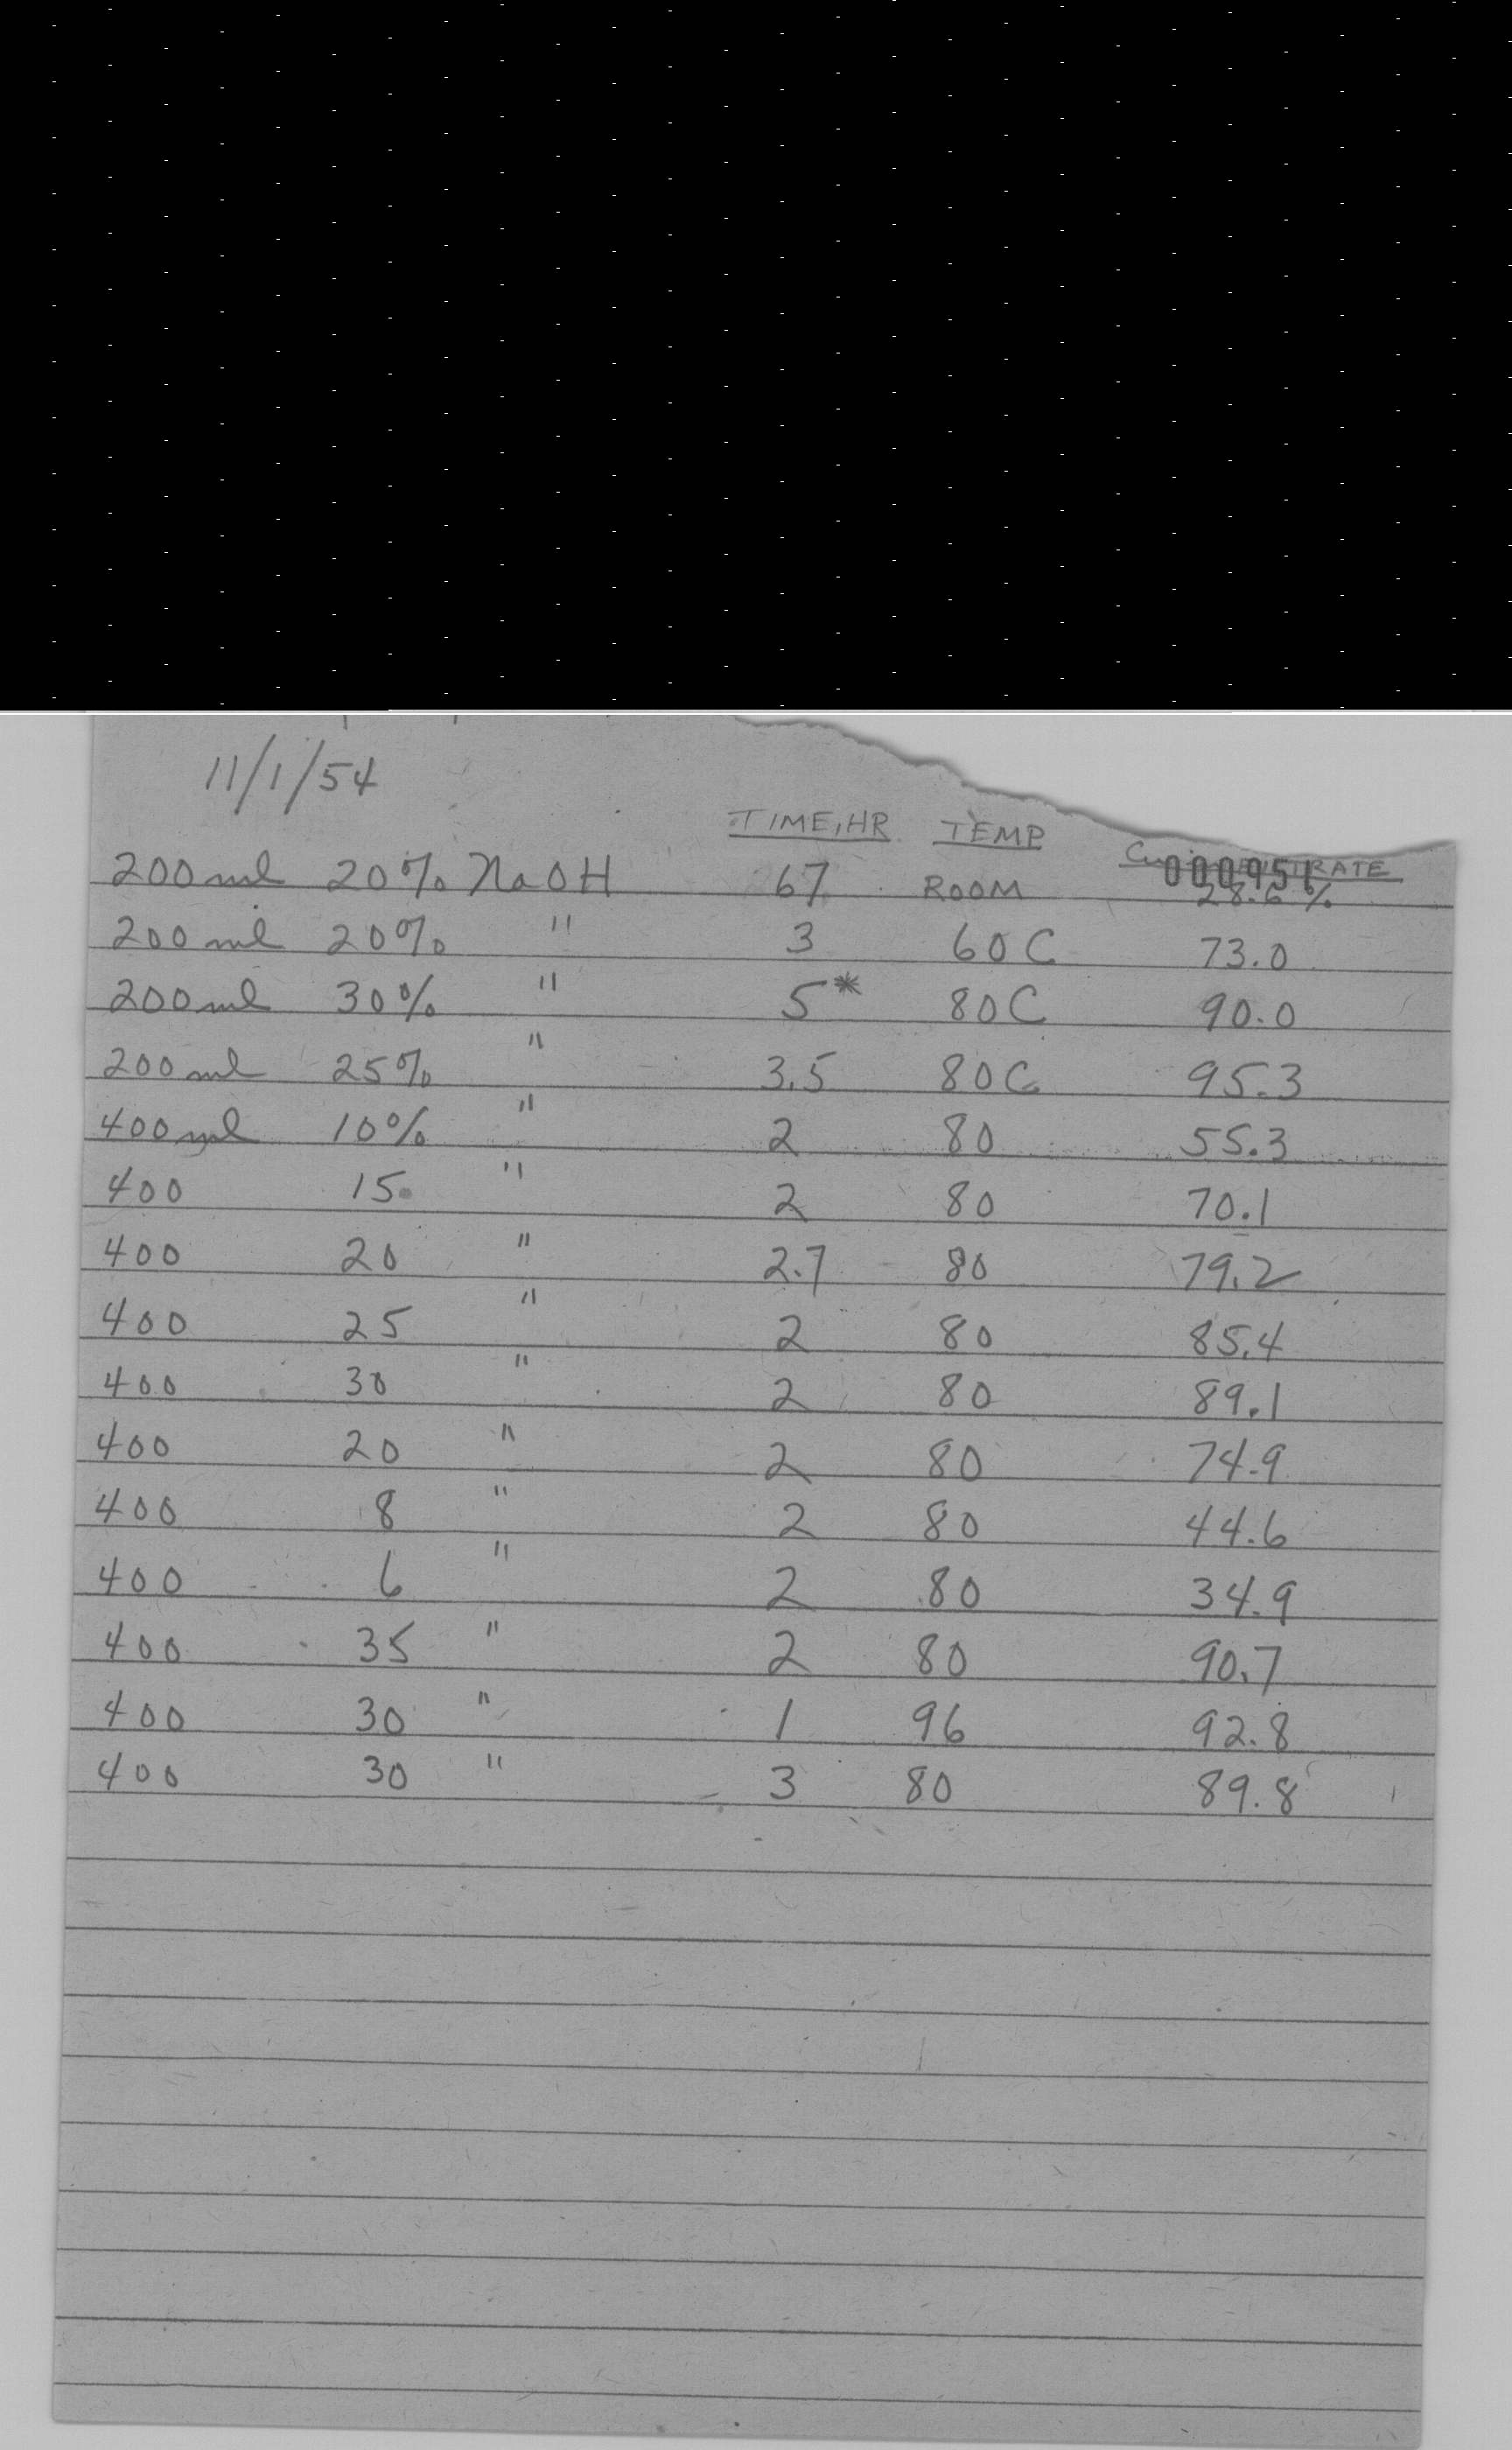 11/1/54
TIME, HR TEMP
000951
200 ml 20% NaOH 67 ROOM 28.6%
200 ml 20% " 3 60 C 73.0
200 ml 30% " 5* 80 C 90.0
200 ml 25% " 3.5 80 C 95.3
400 ml 10% " 2 80 55.3
400 15 " 2 80 70.1
400 20 " 2.7 80 79.2
400 25 " 2 80 85.4
400 30 " 2 80 89.1
400 20 " 2 80 74.9
400 8 " 2 80 44.6
400 6 " 2 80 34.9
400 35 " 2 80 90.7
400 30 " 1 96 92.8
400 30 " 3 80 89.8